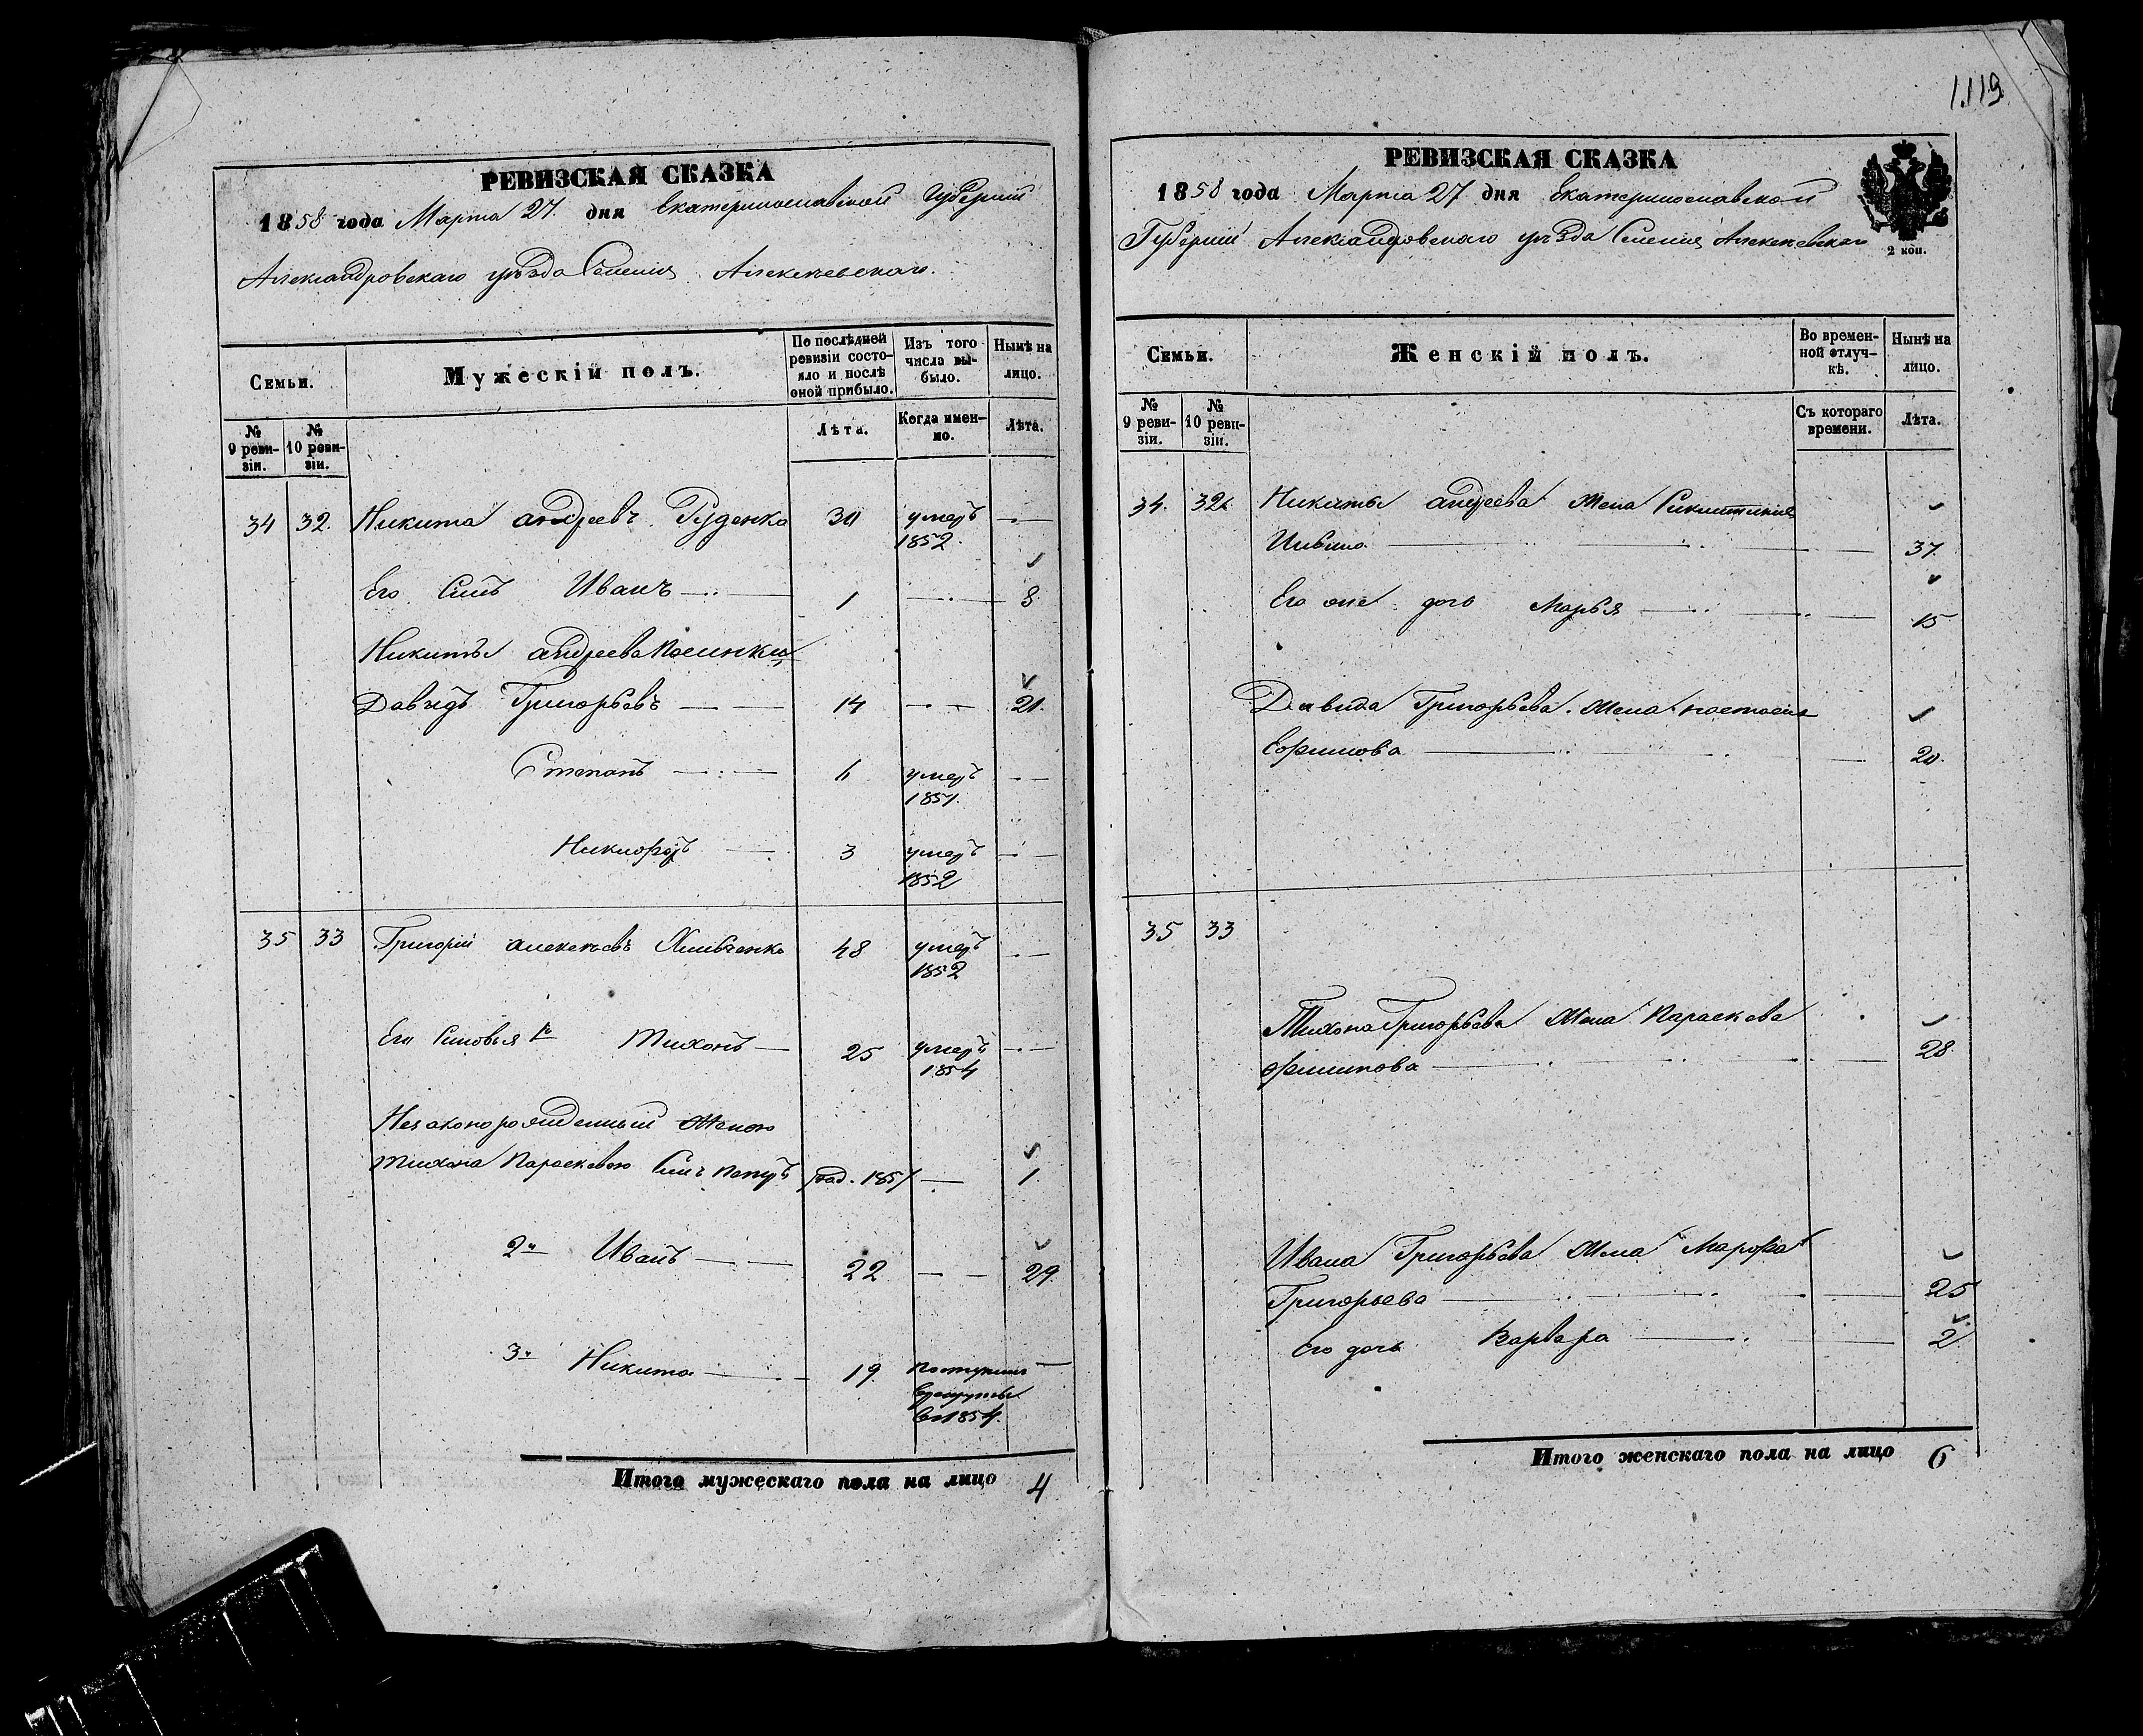 1119
РЕВИЗСКАЯ СКАЗКА
1858 года Марта 27. дня Екатеринославской Губерніи
Александровскаго уѣзда Селенія Алексѣевскаго.
Семьи.
Мужескій полъ.
По послѣдней ревизіи состояло и послѣ оной прибыло.
Изъ того числа выбыло.
Нынѣ на лицо.
№ 9 ревизіи.
№ 10 ревизіи.
Лѣта.
Когда именно.
Лѣта.
34 32. Никита Андреевъ Руденко умеръ —
1852.
Его Сынъ Иванъ — 1 — 8
Никиты Андреева племянники
Давидъ Григорьевъ — 14 — 21.
Степанъ — 6 умеръ —
1851.
Никифоръ — 3 умеръ —
1852
35 33 Григорій Алексѣевъ 48 умеръ —
1852
Его Сыновья 1й Тихонъ — 25 умеръ —
1854
Незаконорожденный Женою
Тихона Параскевою Сынъ род. 1857 — 1.
2й Иванъ — 22 — 29.
3й Никита — 19 поступилъ —
въ 1854.
Итого мужескаго пола на лицо 4
РЕВИЗСКАЯ СКАЗКА
1858 года Марта 27 дня Екатеринославской
Губерніи Александровскаго уѣзда Селенія Алексѣевскаго
2 коп.
Семьи.
Женскій полъ.
Во временной отлучкѣ.
Нынѣ на лицо.
№ 9 ревизіи.
№ 10 ревизіи.
Съ котораго времени.
Лѣта.
34. 32. Никиты Андреева Жена
— 37.
Его же дочь Марья — 15
Давида Григорьева Жена Настасья
Ефимова — 20.
35 33
Тихона Григорьева Жена Параскева
Филипова — 28.
Ивана Григорьева Жена Марфа
Григорьева — 25
Его дочь Варвара — 2
Итого женскаго пола на лицо 6